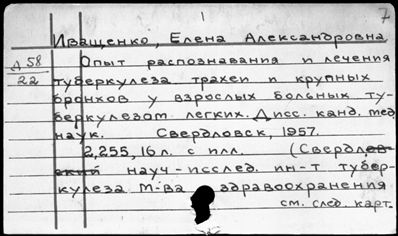 7
Иващенко, Елена Александровна
Д 58
22
Опыт распознавания и лечения
туберкулеза трахеи и крупных
бронхов у взрослых больных ту-
беркулезом легких. Дисс. канд. мед.
наук. Свердловск, 1957.
2,255,16 л. с илл. (Свердлов-
ский науч-исслед. ин-т тубер-
кулеза М-ва здравоохранения
см. след. карт.